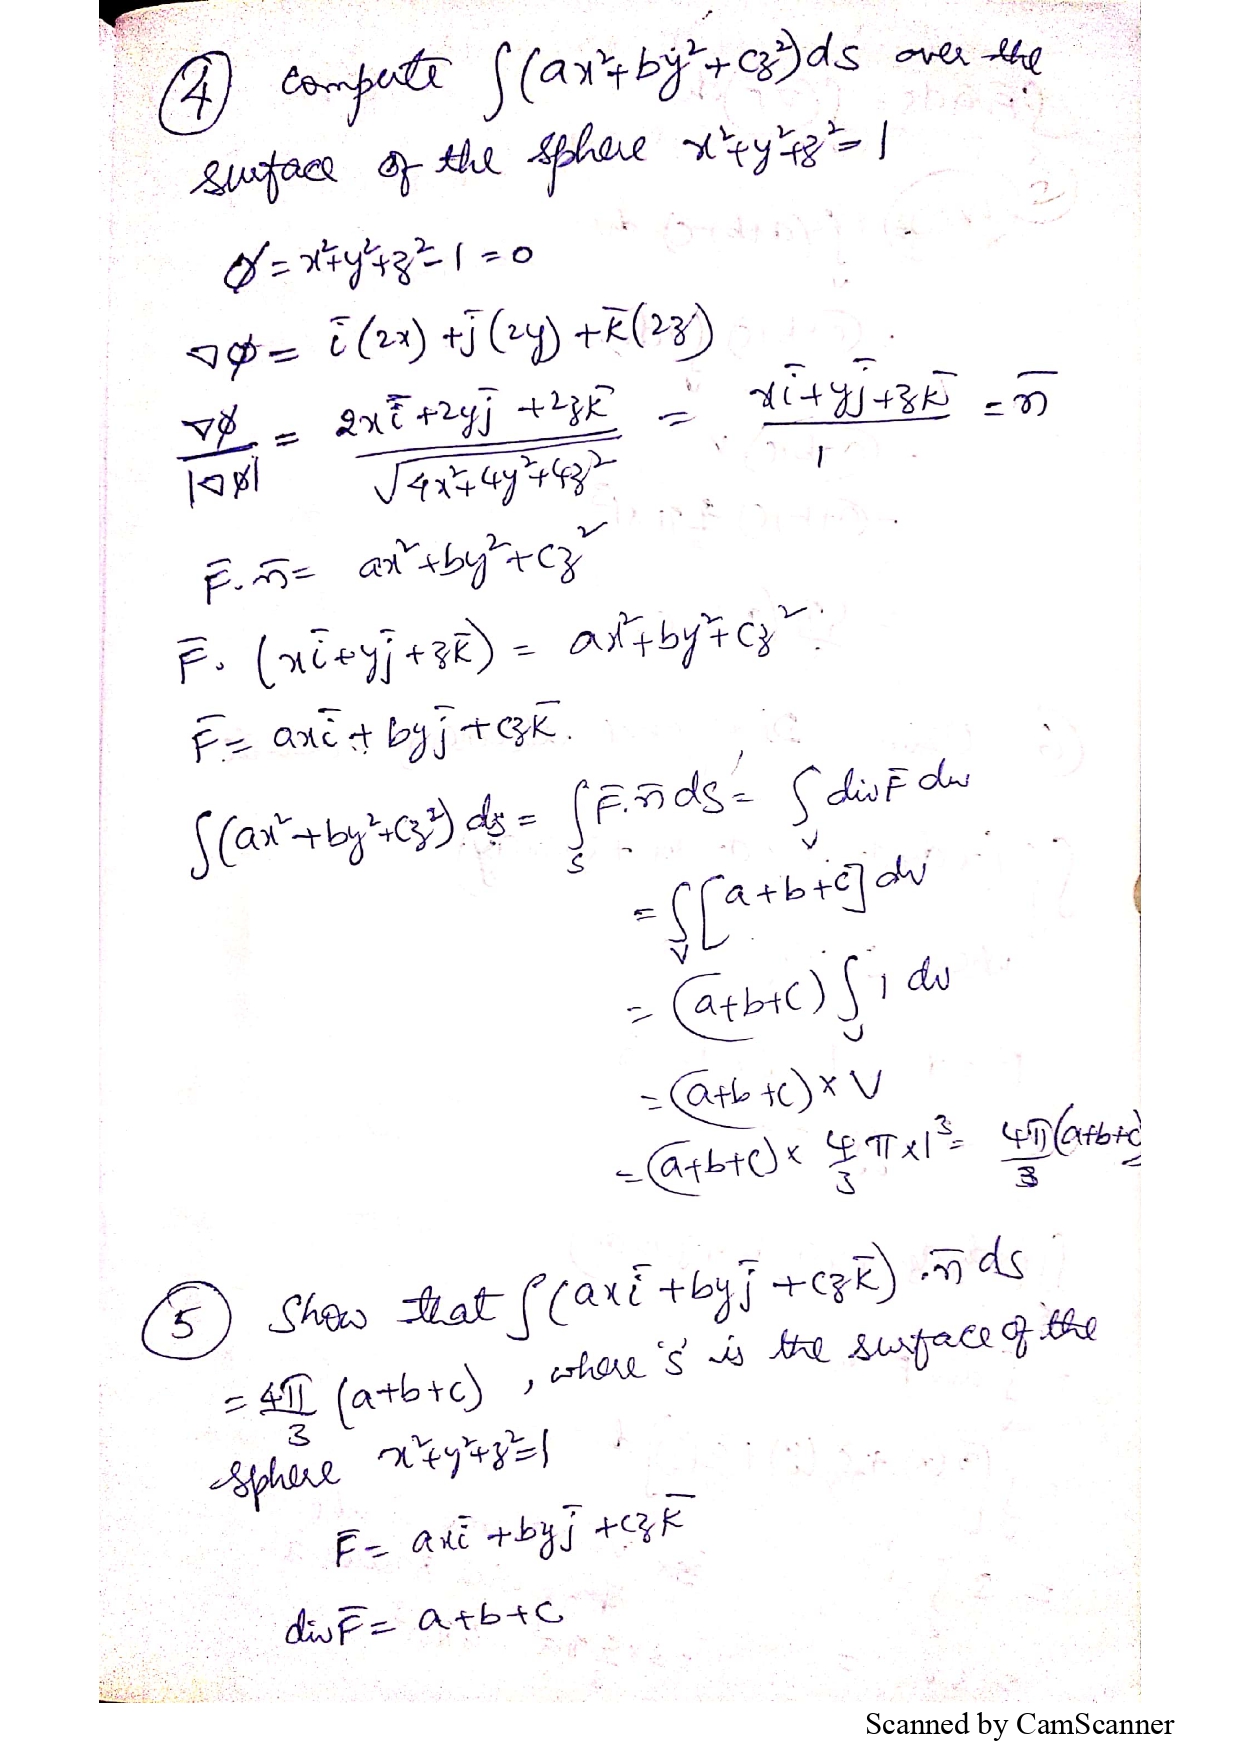 ④ compute ∫(ax²+by²+cz²)ds over the
surface of the sphere x²+y²+z²=1
ϕ = x²+y²+z²-1 = 0
∇ϕ = i̅(2x) + j̅(2y) + k̅(2z)
∇ϕ/|∇ϕ| = (2xi̅+2yj̅+2zk̅)/√(4x²+4y²+4z²) = (xi̅+yj̅+zk̅)/1 = n̅
F̅.n̅ = ax²+by²+cz²
F̅.(xi̅+yj̅+zk̅) = ax²+by²+cz².
F̅ = axi̅+byj̅+czk̅.
∫(ax²+by²+cz²)ds = ∫_S F̅.n̅ ds = ∫_V div F̅ dv
= ∫_V [a+b+c] dv
= (a+b+c) ∫_V 1 dv
= (a+b+c) × V
= (a+b+c) × 4/3 π×1³ = 4π/3 (a+b+c)
⑤ Show that ∫(axi̅+byj̅+czk̅).n̅ ds
= 4π/3 (a+b+c), where 'S' is the surface of the
sphere x²+y²+z²=1
F̅ = axi̅+byj̅+czk̅
div F̅ = a+b+c
Scanned by CamScanner